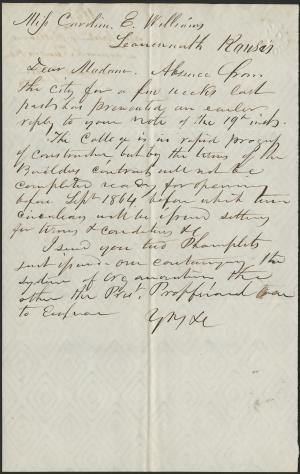 Miss Caroline E. Williams
Leavenworth Kansas
Dear Madam. Absence from
the city for a few weeks last
past has prevented an earlier
reply to your note of the 19th inst.
The College is in rapid progress
of construction but by the terms of the
Builders contract will not be
completed ready for opening
before Septr 1864 before which time
circulars will be issued setting
for terms & conditions &c
I send you two Phamplets
just issued one containing the
system of organization the
other the Prest.
to
Yrs &c